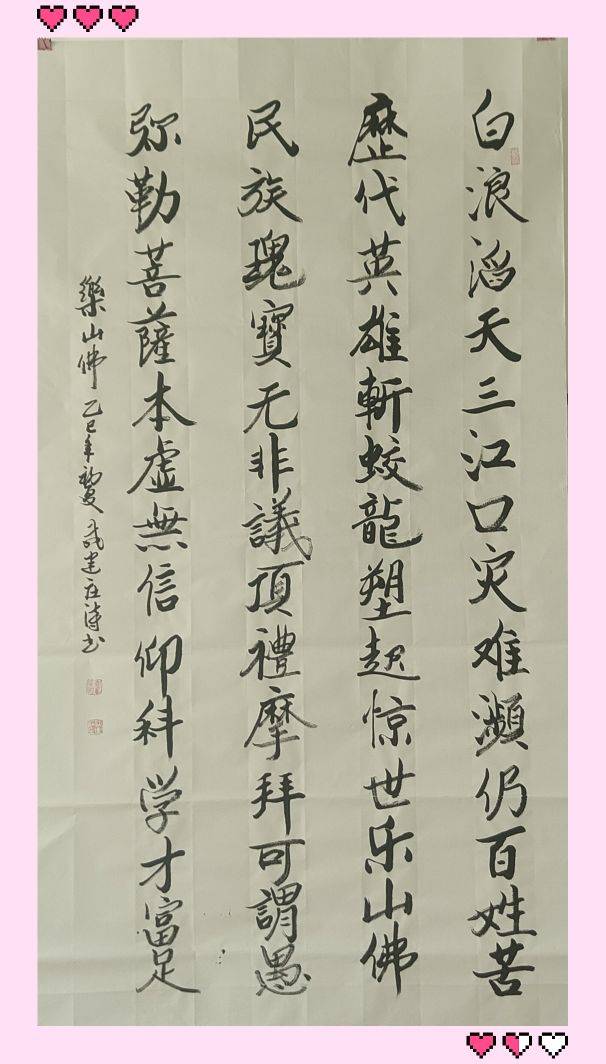 白浪滔天三江口灾难濒仍百姓苦
歷代英雄斬蛟龍塑起惊世乐山佛
民族瑰寶无非議頂禮摩拜可謂愚
弥勒菩薩本虚無信仰科学才富足
樂山佛 乙巳年初夏 建 诗书